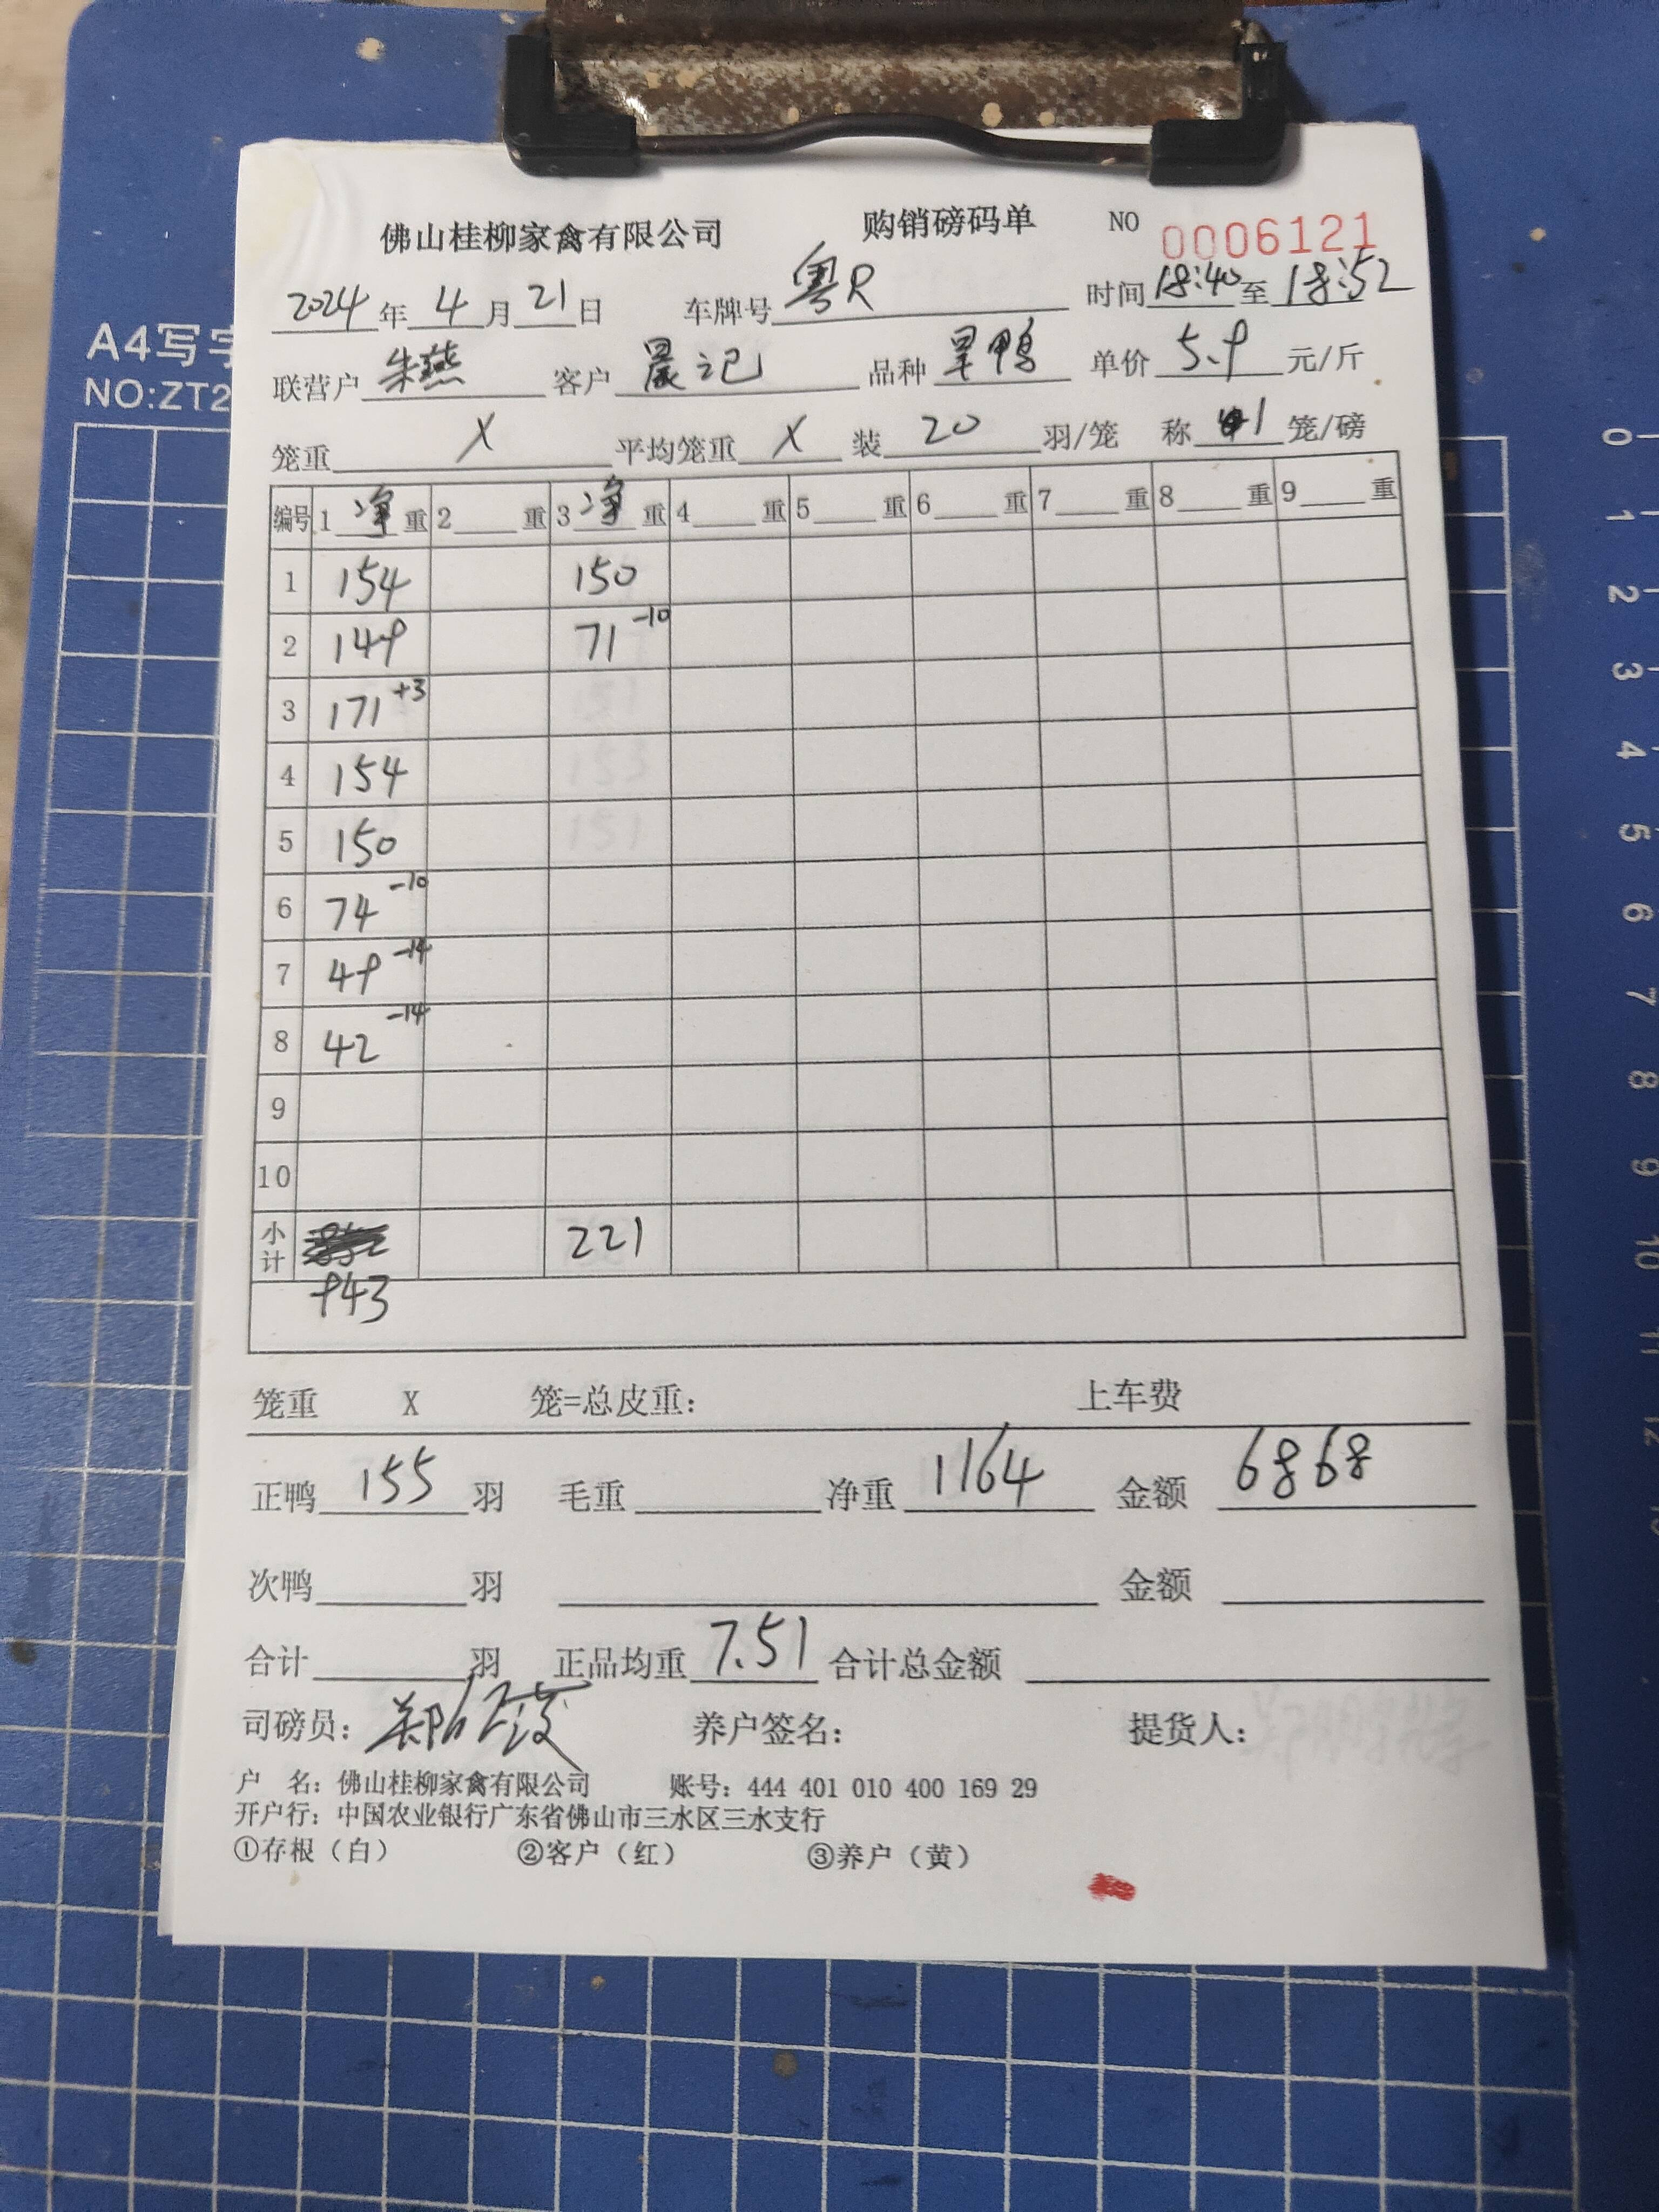 佛山桂柳家禽有限公司 购销磅码单 NO 0006121
2024年4月21日 车牌号粤R 时间18:40至18:52
A4写字
联营户朱燕 客户晨记 品种旱鸭 单价5.9元/斤
NO:ZT2
笼重X 平均笼重X 装20羽/笼 称1笼/磅
编号 1净重 2重 3净重 4重 5重 6重 7重 8重 9重
1 154 150
2 149 71 -10
3 171 +3
4 154
5 150
6 74 -10
7 49 -14
8 42 -14
9
10
小计 221
943
笼重 X 笼=总皮重: 上车费
正鸭155羽 毛重 净重1164 金额6868
次鸭 羽 金额
合计 羽 正品均重7.51 合计总金额
司磅员: 养户签名: 提货人:
户 名: 佛山桂柳家禽有限公司 账号: 444 401 010 400 169 29
开户行: 中国农业银行广东省佛山市三水区三水支行
①存根（白） ②客户（红） ③养户（黄）
0
1
2
3
4
5
6
7
8
9
10
11
12